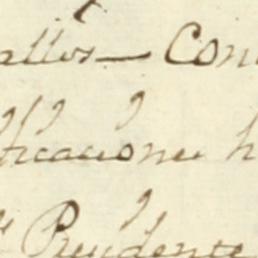 allos - Con
ficaciones h
Presidente